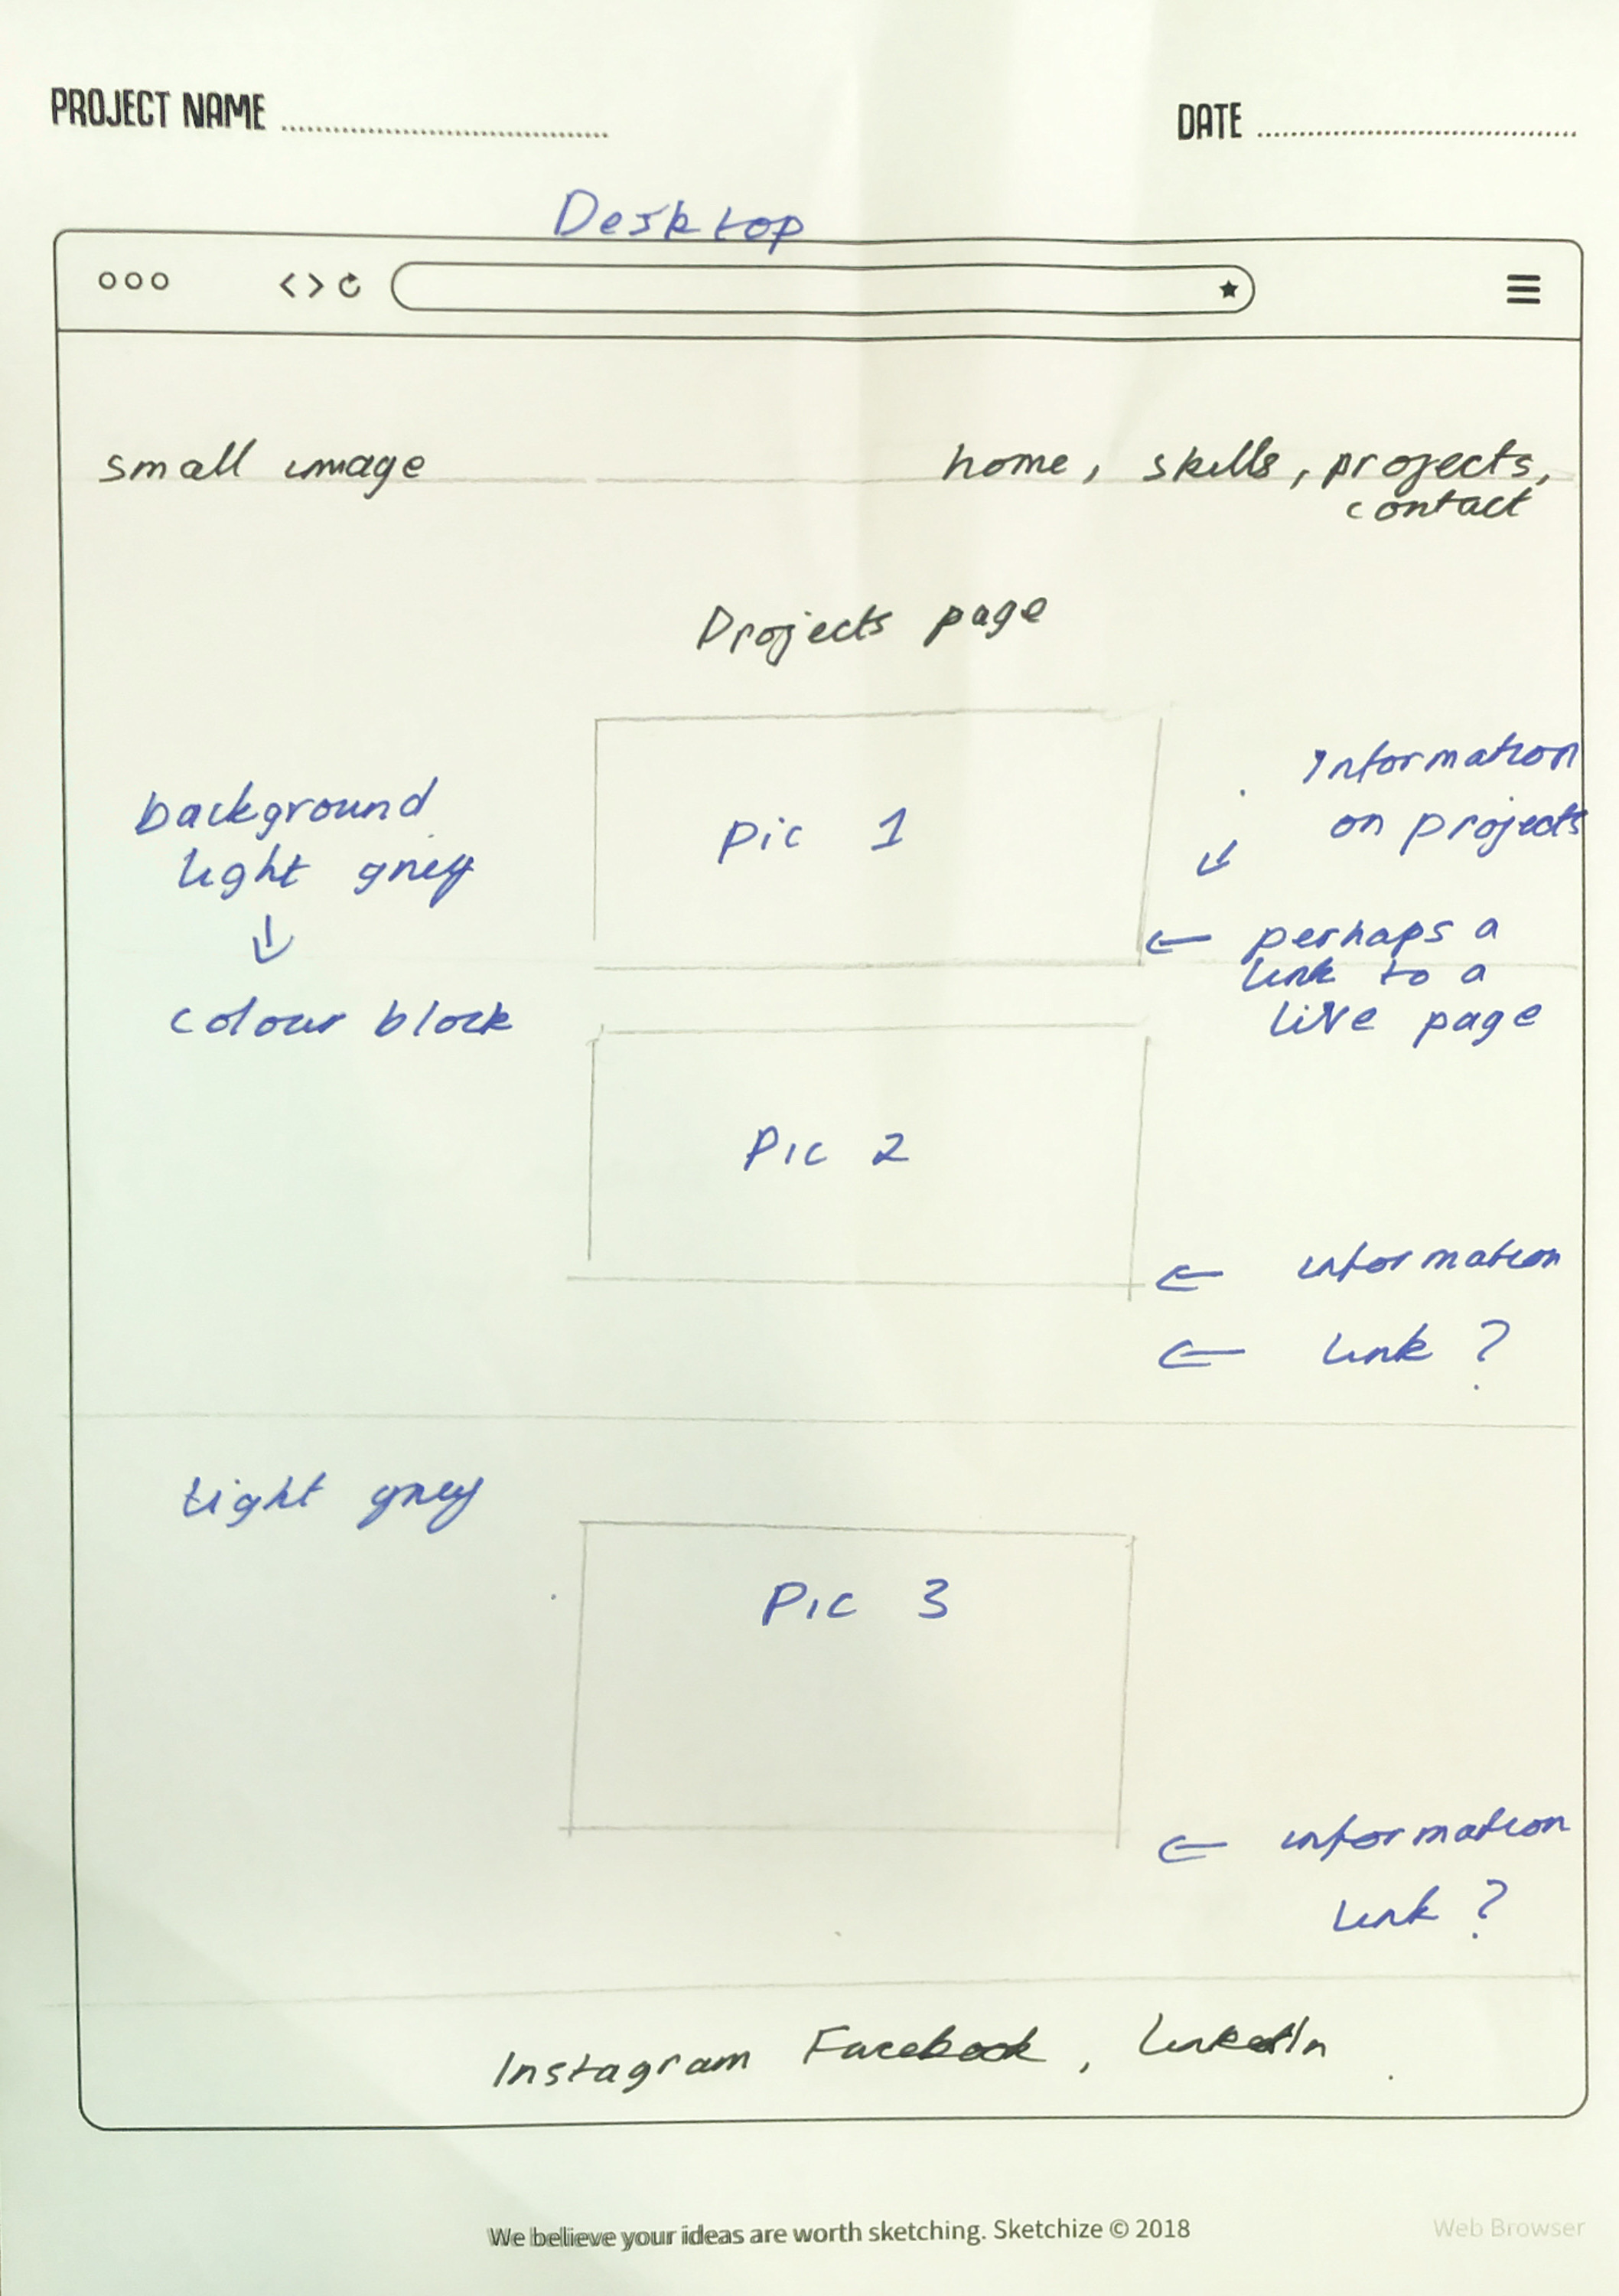 PROJECT NAME
DATE
Desktop
small image
home, skills, projects,
contact
Projects page
background
light grey
colour block
pic 1
Information
on projects
perhaps a
link to a
live page
Pic 2
information
link ?
Light grey
Pic 3
information
link ?
Instagram Facebook, LinkedIn
We believe your ideas are worth sketching. Sketchize © 2018
Web Browser